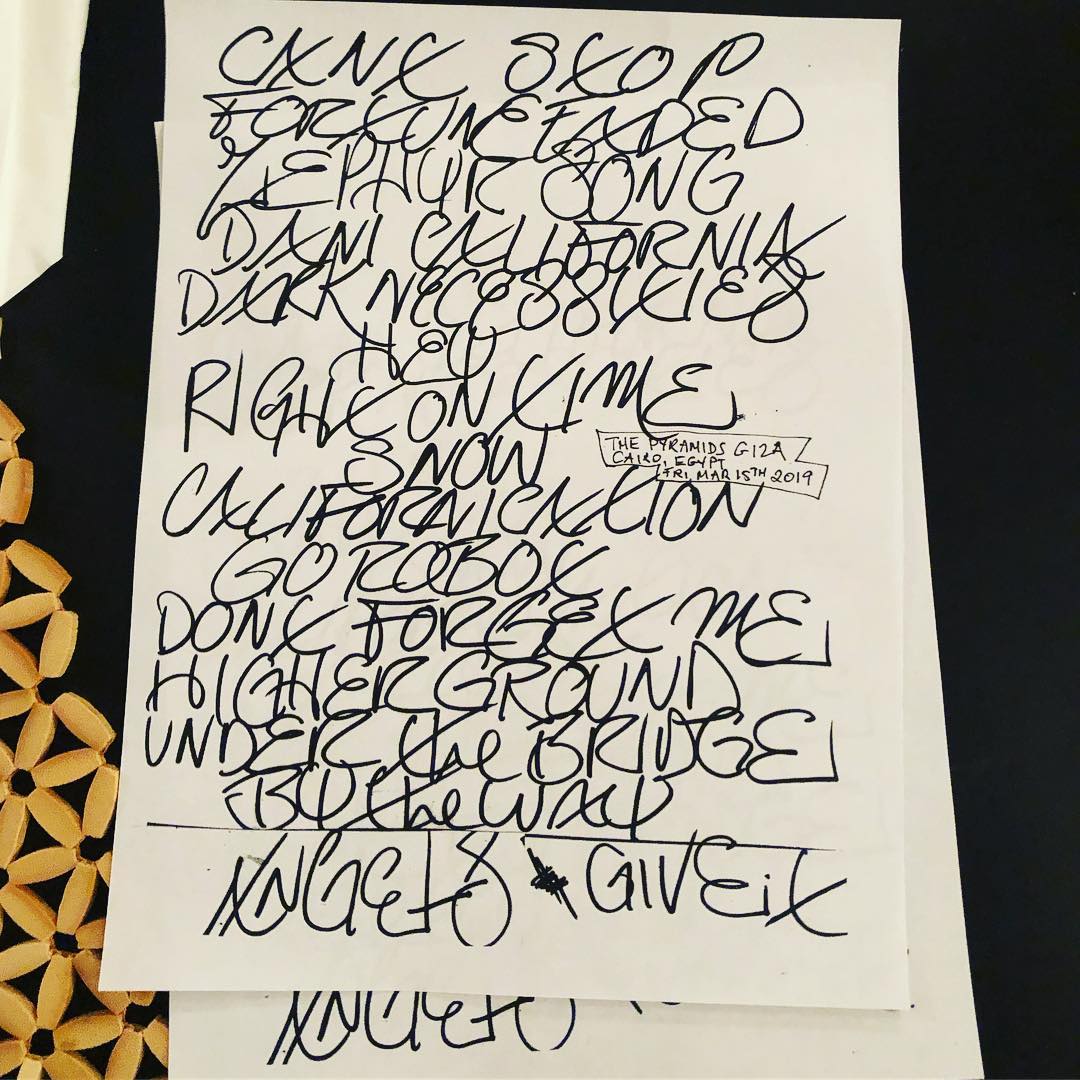 CAN'T STOP
FORTUNE FADED
ZEPHYR SONG
DANI CALIFORNIA
DARK NECESSITIES
HEY
RIGHT ON TIME
SNOW
THE PYRAMIDS GIZA
CAIRO, EGYPT
FRI, MAR 15TH 2019
CALIFORNICATION
GO ROBOT
DONT FORGET ME
HIGHER GROUND
UNDER the BRIDGE
BY the WAY
ANGELS GIVE iT
ANGELS